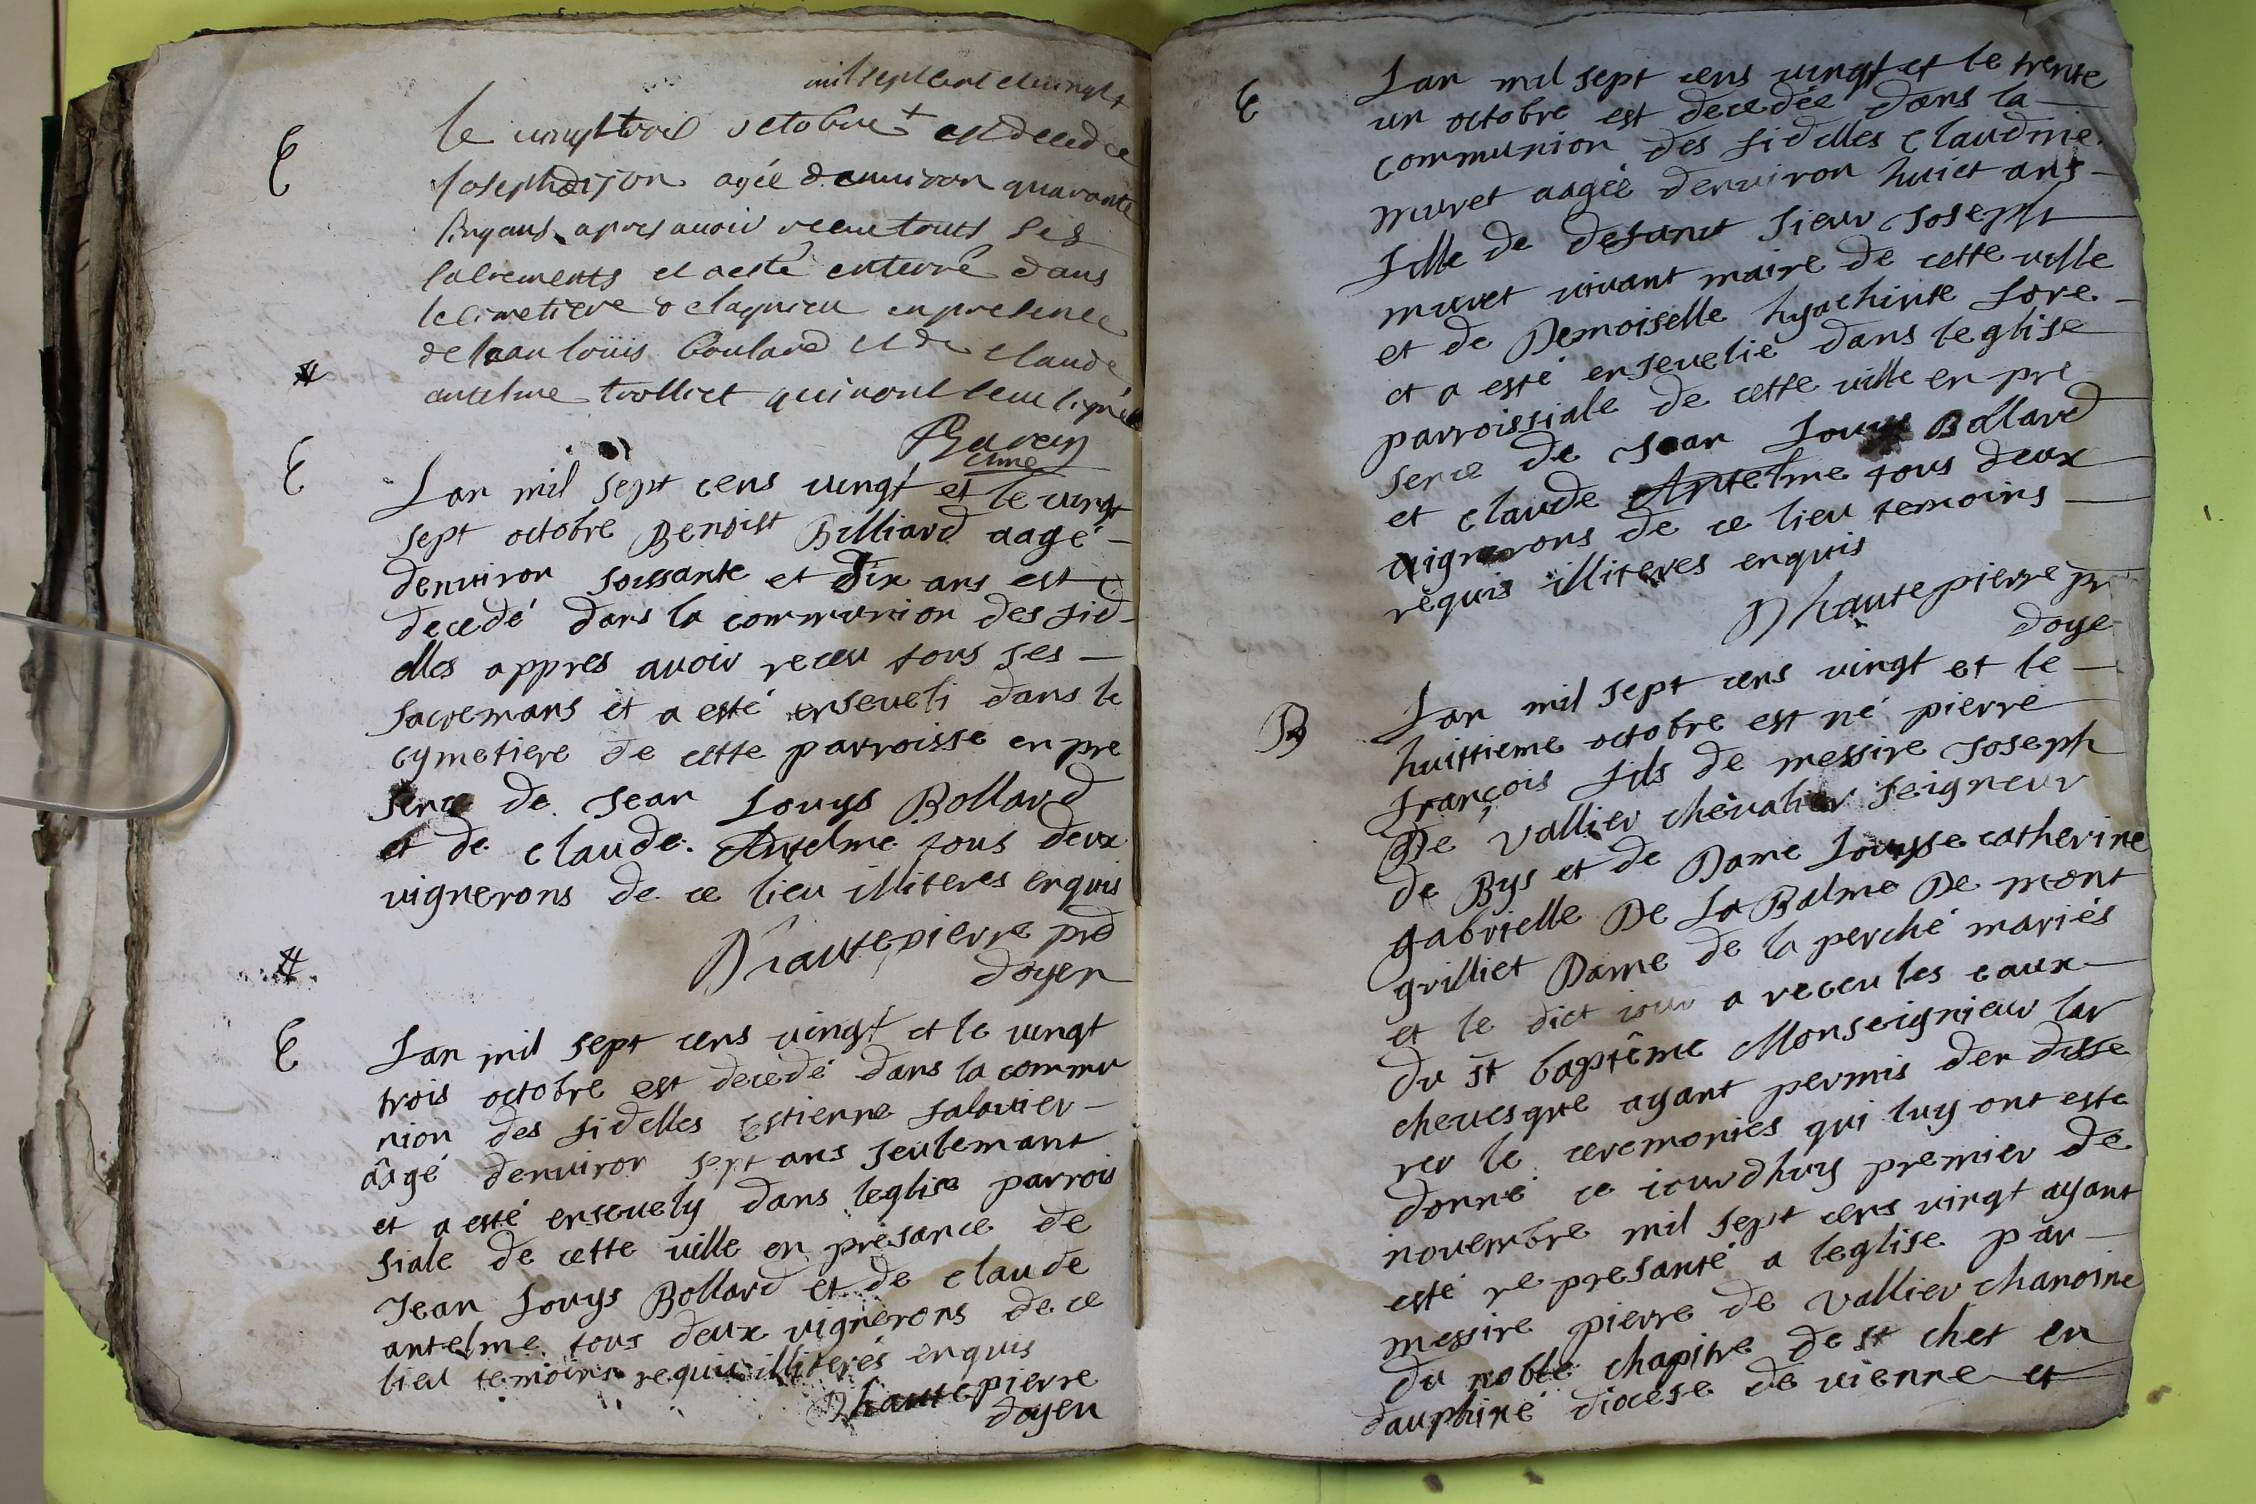 mil sept cent et vingt +
E
le vingt trois octobre + est decedee
Joseph agée denviron quarante
cinq ans apres avoir receu touts ses
sacrements et a esté enterré dans
le cimetiere de lagnieu en presence
de Jean loüis boulard et de claude
antelme trolliet qui nont sceu signé
cure
E
Lan mil sept cens vingt et le vingt
sept octobre Benoist Billiard aagé
denviron soissante et dix ans est
decedé dans la communion des fid
elles appres avoir receu tous ses
sacremans et a esté enseveli dans le
cymetiere de cette parroisse en pre
sence de Jean Louys Bollard
et de claude Antelme tous deux
vignerons de ce lieu illiteres enquis
Dhautepierre pre
doyen
E
Lan mil sept cens vingt et le vingt
trois octobre est decedé dans la commu
nion des fidelles Estienne salavier
aagé denviron sept ans seulemant
et a esté ensevely dans leglise parrois
siale de cette ville en présance de
Jean Louys Bollard et de claude
antelme tous deux vignerons de ce
lieu temoins requis illiterés enquis
Dhautepierre
doyen
E
Lan mil sept cens vingt et le trente
un octobre est decedée dans la
communion des fidelles claudine
muret aagée denviron huict ans
fille de defunct sieur Joseph
muret vivant maire de cette ville
et de Demoiselle hyachinte fore
et a esté ensevelie dans leglise
parroissiale de cette ville en pre
sence de Jean Louys Bollard
et claude Antelme tous deux
vignerons de ce lieu temoins
requis illiteres enquis
Dhautepierre pr
doye
B
Lan mil sept cens vingt et le
huittieme octobre est né pierre
françois fils de messire Joseph
De Vallier chevalier seigneur
de Bys et de Dame Louysse catherine
gabrielle De La Balme De mont
grilliet Dame de la perche mariés
et le dict iour a receu les eaux
du st baptême Monseignieur lar
chevesque ayant permis den diffe
rer le ceremonies qui luy ont esté
donné ce iourdhuy premier de
novembre mil sept cens vingt ayant
esté represanté a leglise par
messire pierre de Vallier chanoine
du noble chapitre de st chef en
dauphiné diocese de vienne et